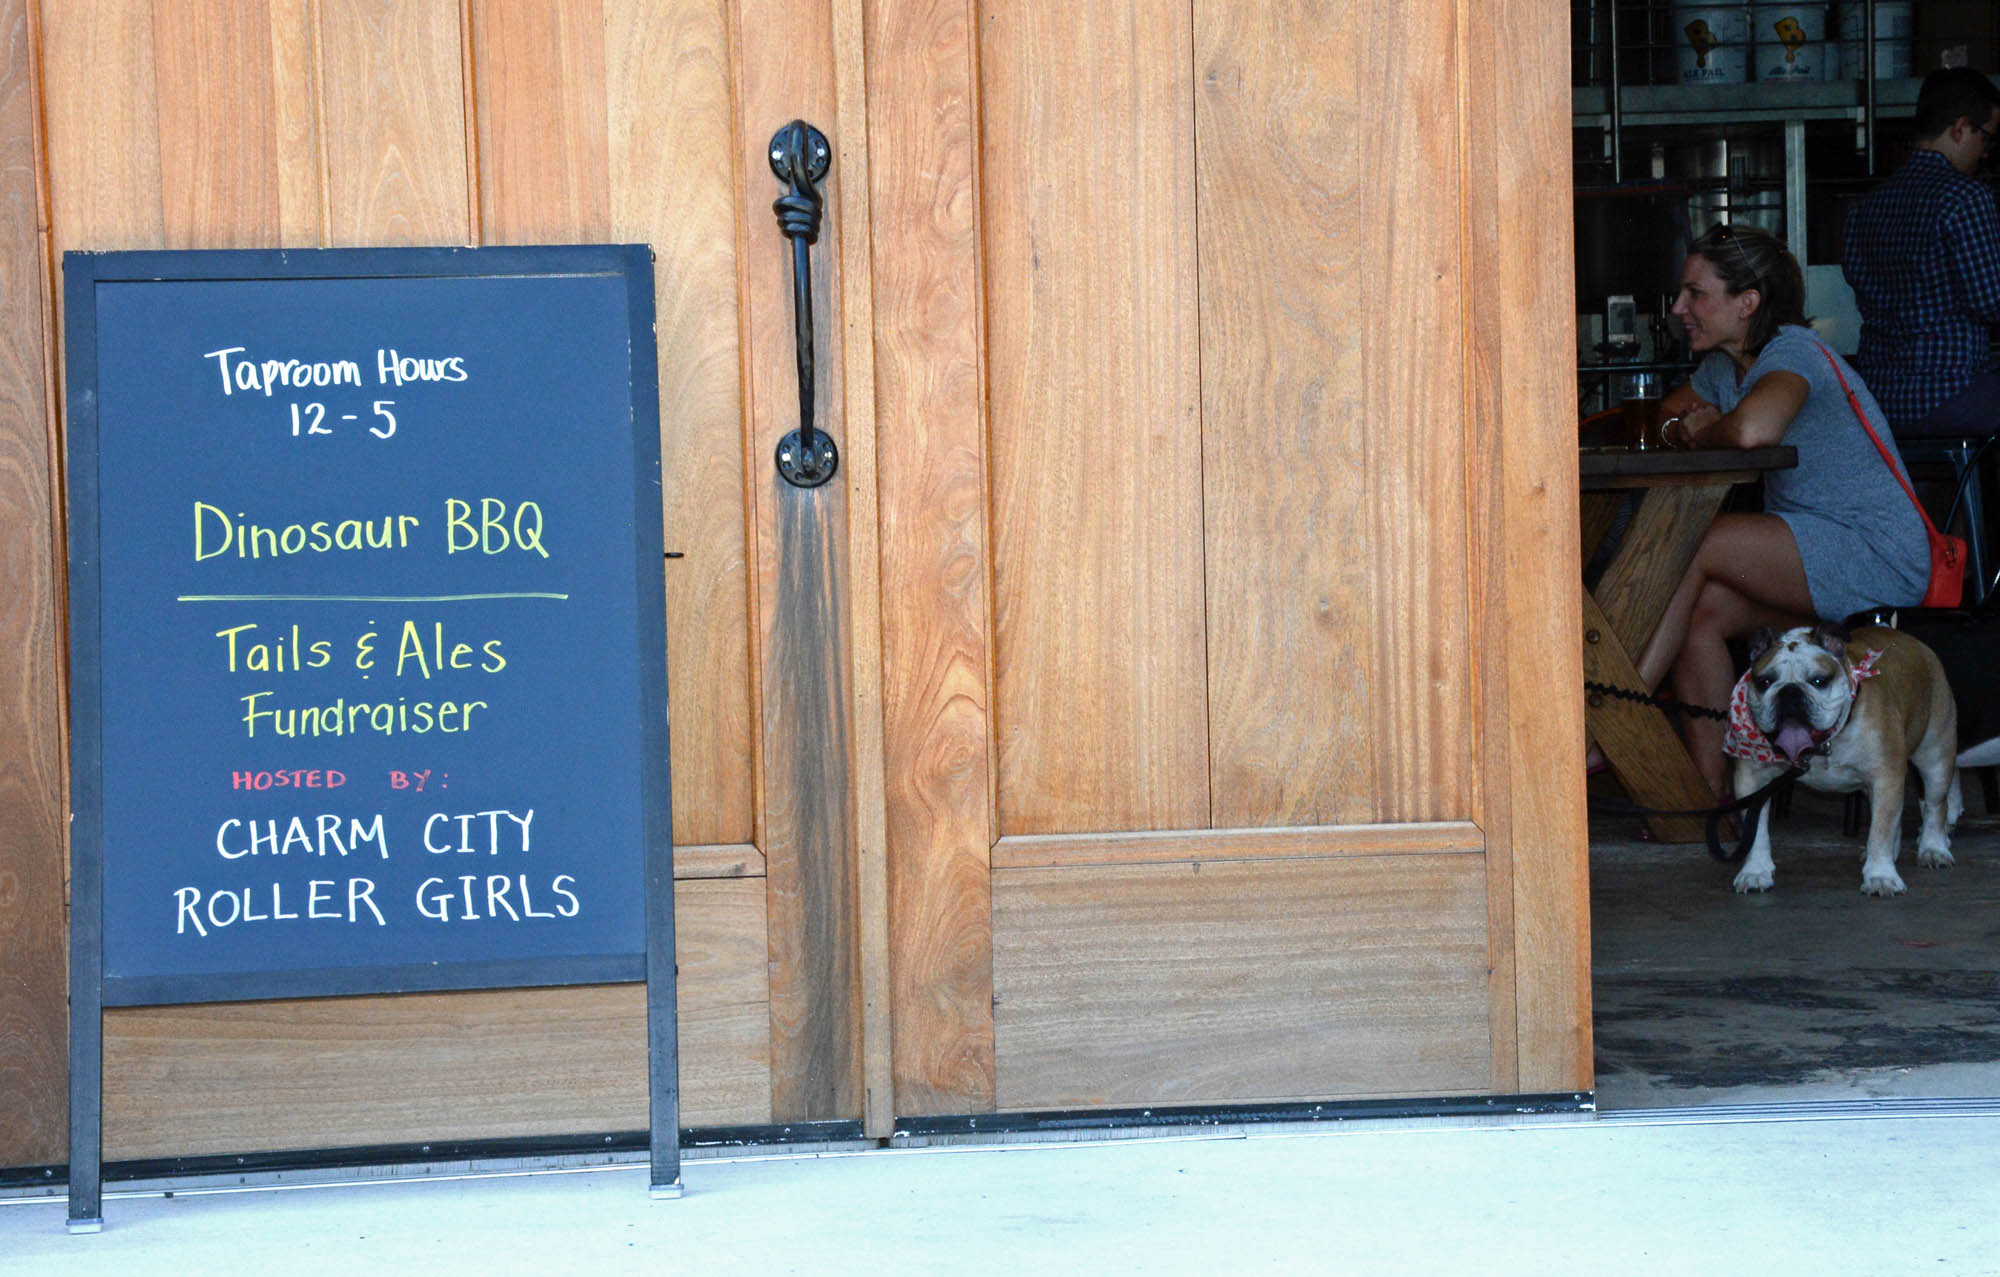 Taproom Hours
12 - 5
Dinosaur BBQ
Tails & Ales
Fundraiser
HOSTED BY:
CHARM CITY
ROLLER GIRLS
ALE PAIL
Ale Pail